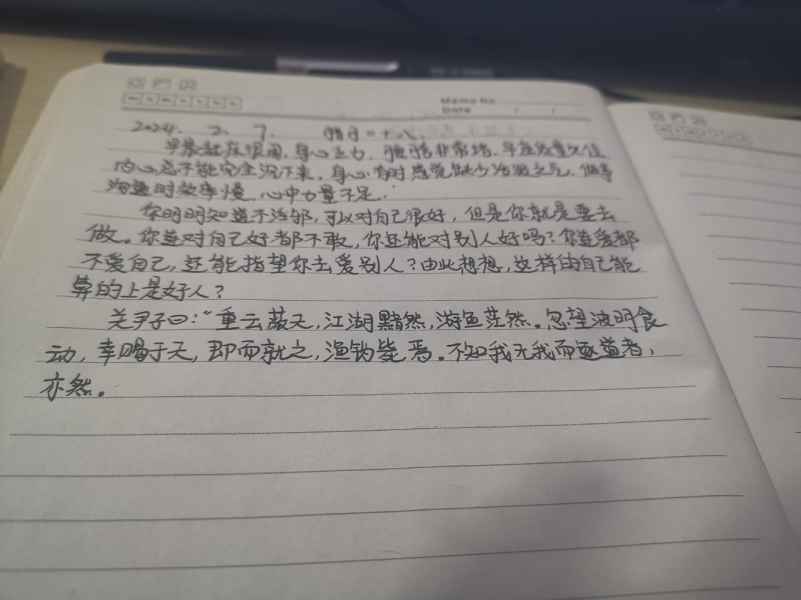 Memo No.
Date / /
2024. 2. 7. 腊月二十八
早晨起床很困，身心乏力，
内心总不能完全沉下来，身心有时感觉缺少活泼之气，做事
沟通时效率慢，心中力量不足。
你明明知道不活那，可以对自己很好，但是你就是要去
做。你连对自己好都不敢，你还能对别人好吗？你连爱都
不爱自己，还能指望你去爱别人？由此想想，这样的自己能
算的上是好人？
关尹子曰：“重云蔽天，江湖黯然，游鱼茫然。忽望波明食
动，幸赐于天，即而就之，渔钓毙焉。不知我无我而逐道者，
亦然。